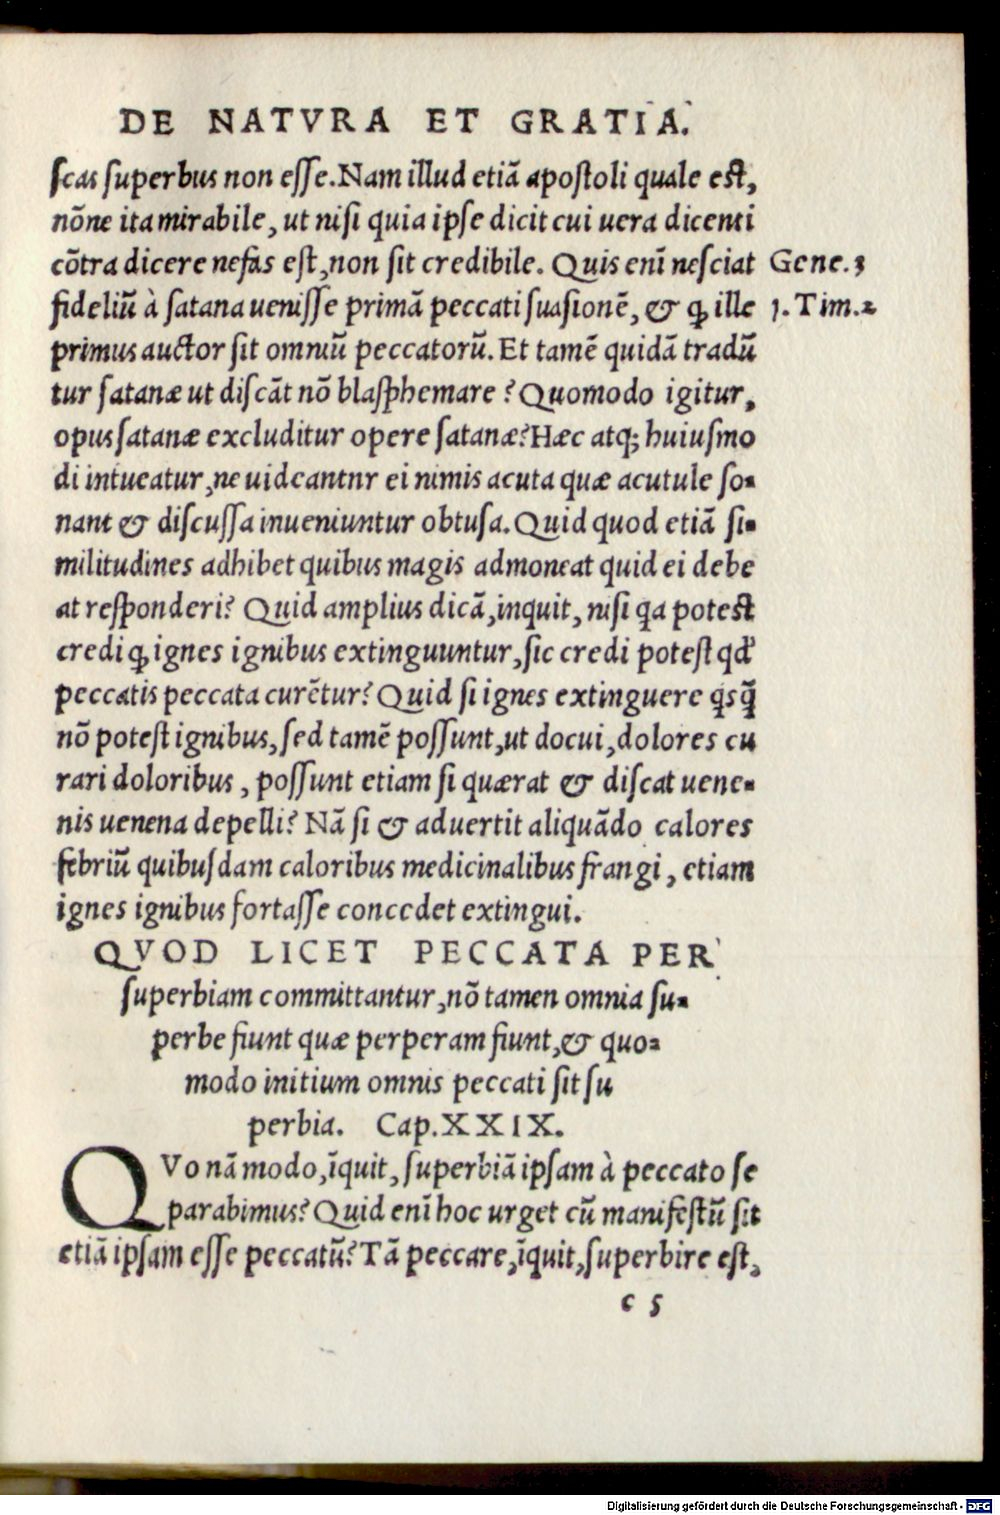 DE NATVRA ET GRATIA.
scas superbus non esse. Nam illud etiã apostoli quale est,
nõne ita mirabile, ut nisi quia ipse dicit cui uera dicenti
cõtra dicere nefas est, non sit credibile. Quis enĩ nesciat
Gene.3
fideliũ à satana uenisse primã peccati suasionē, & ꝙ ille
1. Tim.2
primus auctor sit omniũ peccatorũ. Et tamē quidã tradũ
tur satanæ ut discãt nõ blasphemare? Quomodo igitur,
opus satanæ excluditur opere satanæ? Hæc atq; huiusmo
di intueatur, ne uideantnr ei nimis acuta quæ acutule so-
nant & discussa inueniuntur obtusa. Quid quod etiã si-
militudines adhibet quibus magis admoneat quid ei debe
at responderi? Quid amplius dicã, inquit, nisi qa potest
credi ꝙ ignes ignibus extinguuntur, sic credi potest qd'
peccatis peccata curētur? Quid si ignes extinguere qsq̃
nõ potest ignibus, sed tamē possunt, ut docui, dolores cu
rari doloribus, possunt etiam si quærat & discat uene-
nis uenena depelli? Nã si & aduertit aliquãdo calores
febriũ quibusdam caloribus medicinalibus frangi, etiam
ignes ignibus fortasse concedet extingui.
QVOD LICET PECCATA PER
superbiam committantur, nõ tamen omnia su-
perbe fiunt quæ perperam fiunt, & quo-
modo initium omnis peccati sit su
perbia. Cap. XXIX.
QVo nã modo, ĩquit, superbiã ipsam à peccato se
parabimus? Quid enĩ hoc urget cũ manifestũ sit
etiã ipsam esse peccatũ? Tã peccare, ĩquit, superbire est,
c 5
Digitalisierung gefördert durch die Deutsche Forschungsgemeinschaft - DFG